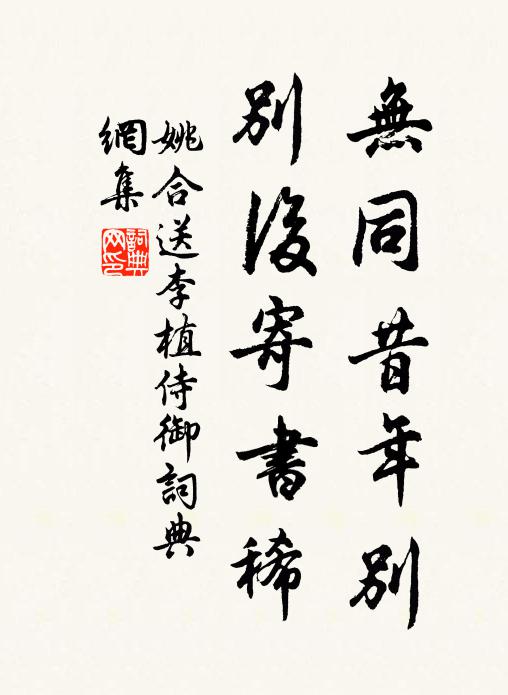 無同昔年別
別後寄書稀
姚合送李植侍御詞典
網集
詞典
网印